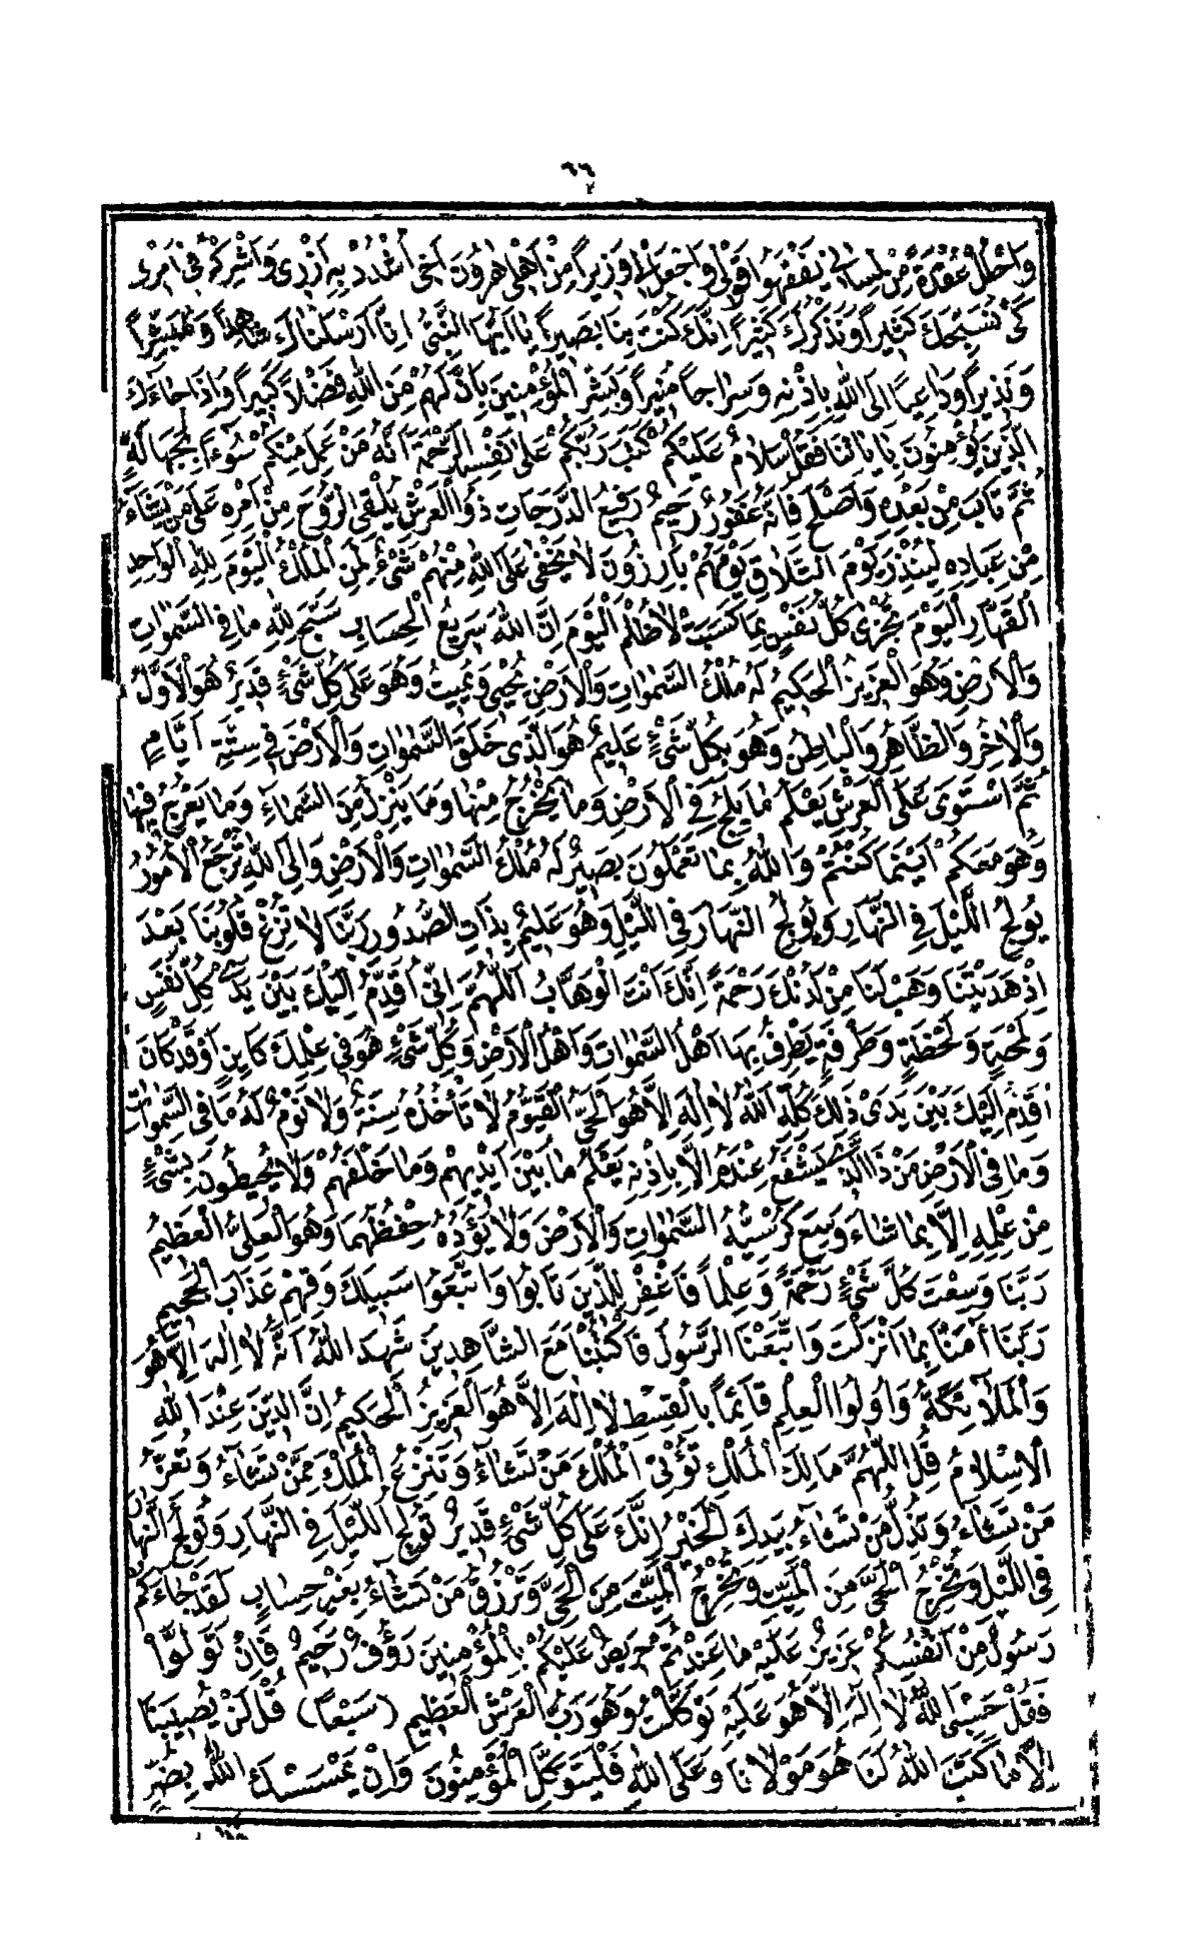 ٦٦
وَاحْلُلْ عُقْدَةً مِنْ لِسَانِي يَفْقَهُوا قَوْلِي وَاجْعَلْ لِي وَزِيرًا مِنْ اَهْلِي هٰرُونَ اَخِي اُشْدُدْ بِهِ اَزْرِى وَاَشْرِكْهُ فِى اَمْرِى
كَىْ نُسَبِّحَكَ كَثِيرًا وَنَذْكُرَكَ كَثِيرًا اِنَّكَ كُنْتَ بِنَا بَصِيرًا يَا اَيُّهَا النَّبِىُّ اِنَّا اَرْسَلْنَاكَ شَاهِدًا وَمُبَشِّرًا
وَنَذِيرًا وَدَاعِيًا اِلَى اللّٰهِ بِاِذْنِهِ وَسِرَاجًا مُنِيرًا وَبَشِّرِ الْمُؤْمِنِينَ بِاَنَّ لَهُمْ مِنَ اللّٰهِ فَضْلًا كَبِيرًا وَاِذَا جَاءَكَ
الَّذِينَ يُؤْمِنُونَ بِاٰيَاتِنَا فَقُلْ سَلَامٌ عَلَيْكُمْ كَتَبَ رَبُّكُمْ عَلٰى نَفْسِهِ الرَّحْمَةَ اَنَّهُ مَنْ عَمِلَ مِنْكُمْ سُوءًا بِجَهَالَةٍ
ثُمَّ تَابَ مِنْ بَعْدِهِ وَاَصْلَحَ فَاِنَّهُ غَفُورٌ رَحِيمٌ رَفِيعُ الدَّرَجَاتِ ذُو الْعَرْشِ يُلْقِى الرُّوحَ مِنْ اَمْرِهِ عَلٰى مَنْ يَشَاءُ
مِنْ عِبَادِهِ لِيُنْذِرَ يَوْمَ التَّلَاقِ يَوْمَ هُمْ بَارِزُونَ لَا يَخْفٰى عَلَى اللّٰهِ مِنْهُمْ شَىْءٌ لِمَنِ الْمُلْكُ الْيَوْمَ لِلّٰهِ الْوَاحِدِ
الْقَهَّارِ اَلْيَوْمَ تُجْزٰى كُلُّ نَفْسٍ بِمَا كَسَبَتْ لَا ظُلْمَ الْيَوْمَ اِنَّ اللّٰهَ سَرِيعُ الْحِسَابِ سَبَّحَ لِلّٰهِ مَا فِى السَّمٰوَاتِ
وَالْاَرْضِ وَهُوَ الْعَزِيزُ الْحَكِيمُ لَهُ مُلْكُ السَّمٰوَاتِ وَالْاَرْضِ يُحْيِى وَيُمِيتُ وَهُوَ عَلٰى كُلِّ شَىْءٍ قَدِيرٌ هُوَ الْاَوَّلُ
وَالْاٰخِرُ وَالظَّاهِرُ وَالْبَاطِنُ وَهُوَ بِكُلِّ شَىْءٍ عَلِيمٌ هُوَ الَّذِى خَلَقَ السَّمٰوَاتِ وَالْاَرْضَ فِى سِتَّةِ اَيَّامٍ
ثُمَّ اسْتَوٰى عَلَى الْعَرْشِ يَعْلَمُ مَا يَلِجُ فِى الْاَرْضِ وَمَا يَخْرُجُ مِنْهَا وَمَا يَنْزِلُ مِنَ السَّمَاءِ وَمَا يَعْرُجُ فِيهَا
وَهُوَ مَعَكُمْ اَيْنَمَا كُنْتُمْ وَاللّٰهُ بِمَا تَعْمَلُونَ بَصِيرٌ لَهُ مُلْكُ السَّمٰوَاتِ وَالْاَرْضِ وَاِلَى اللّٰهِ تُرْجَعُ الْاُمُورُ
يُولِجُ اللَّيْلَ فِى النَّهَارِ وَيُولِجُ النَّهَارَ فِى اللَّيْلِ وَهُوَ عَلِيمٌ بِذَاتِ الصُّدُورِ رَبَّنَا لَا تُزِغْ قُلُوبَنَا بَعْدَ
اِذْ هَدَيْتَنَا وَهَبْ لَنَا مِنْ لَدُنْكَ رَحْمَةً اِنَّكَ اَنْتَ الْوَهَّابُ اَللّٰهُمَّ اِنِّى اُقَدِّمُ اِلَيْكَ بَيْنَ يَدَىْ كُلِّ نَفَسٍ
وَلَمْحَةٍ وَلَحْظَةٍ وَطَرْفَةٍ يَطْرِفُ بِهَا اَهْلُ السَّمٰوَاتِ وَاَهْلُ الْاَرْضِ وَكُلِّ شَىْءٍ هُوَ فِى عِلْمِكَ كَايِنٍ اَوْ قَدْ كَانَ
اُقَدِّمُ اِلَيْكَ بَيْنَ يَدَىْ ذٰلِكَ كُلِّهِ اَللّٰهُ لَا اِلٰهَ اِلَّا هُوَ الْحَىُّ الْقَيُّومُ لَا تَأْخُذُهُ سِنَةٌ وَلَا نَوْمٌ لَهُ مَا فِى السَّمٰوَاتِ
وَمَا فِى الْاَرْضِ مَنْ ذَا الَّذِى يَشْفَعُ عِنْدَهُ اِلَّا بِاِذْنِهِ يَعْلَمُ مَا بَيْنَ اَيْدِيهِمْ وَمَا خَلْفَهُمْ وَلَا يُحِيطُونَ بِشَىْءٍ
مِنْ عِلْمِهِ اِلَّا بِمَا شَاءَ وَسِعَ كُرْسِيُّهُ السَّمٰوَاتِ وَالْاَرْضَ وَلَا يَؤُدُهُ حِفْظُهُمَا وَهُوَ الْعَلِىُّ الْعَظِيمُ
رَبَّنَا وَسِعْتَ كُلَّ شَىْءٍ رَحْمَةً وَعِلْمًا فَاغْفِرْ لِلَّذِينَ تَابُوا وَاتَّبَعُوا سَبِيلَكَ وَقِهِمْ عَذَابَ الْجَحِيمِ
رَبَّنَا اٰمَنَّا بِمَا اَنْزَلْتَ وَاتَّبَعْنَا الرَّسُولَ فَاكْتُبْنَا مَعَ الشَّاهِدِينَ شَهِدَ اللّٰهُ اَنَّهُ لَا اِلٰهَ اِلَّا هُوَ
وَالْمَلَائِكَةُ وَاُولُوا الْعِلْمِ قَائِمًا بِالْقِسْطِ لَا اِلٰهَ اِلَّا هُوَ الْعَزِيزُ الْحَكِيمُ اِنَّ الدِّينَ عِنْدَ اللّٰهِ
الْاِسْلَامُ قُلِ اللّٰهُمَّ مَالِكَ الْمُلْكِ تُؤْتِى الْمُلْكَ مَنْ تَشَاءُ وَتَنْزِعُ الْمُلْكَ مِمَّنْ تَشَاءُ وَتُعِزُّ
مَنْ تَشَاءُ وَتُذِلُّ مَنْ تَشَاءُ بِيَدِكَ الْخَيْرُ اِنَّكَ عَلٰى كُلِّ شَىْءٍ قَدِيرٌ تُولِجُ اللَّيْلَ فِى النَّهَارِ وَتُولِجُ النَّهَارَ
فِى اللَّيْلِ وَتُخْرِجُ الْحَىَّ مِنَ الْمَيِّتِ وَتُخْرِجُ الْمَيِّتَ مِنَ الْحَىِّ وَتَرْزُقُ مَنْ تَشَاءُ بِغَيْرِ حِسَابٍ لَقَدْ جَاءَكُمْ
رَسُولٌ مِنْ اَنْفُسِكُمْ عَزِيزٌ عَلَيْهِ مَا عَنِتُّمْ حَرِيصٌ عَلَيْكُمْ بِالْمُؤْمِنِينَ رَؤُفٌ رَحِيمٌ فَاِنْ تَوَلَّوْا
فَقُلْ حَسْبِىَ اللّٰهُ لَا اِلٰهَ اِلَّا هُوَ عَلَيْهِ تَوَكَّلْتُ وَهُوَ رَبُّ الْعَرْشِ الْعَظِيمِ (سَبْعًا) قُلْ لَنْ يُصِيبَنَا
اِلَّا مَا كَتَبَ اللّٰهُ لَنَا هُوَ مَوْلَانَا وَعَلَى اللّٰهِ فَلْيَتَوَكَّلِ الْمُؤْمِنُونَ وَاِنْ يَمْسَسْكَ اللّٰهُ بِضُرٍّ